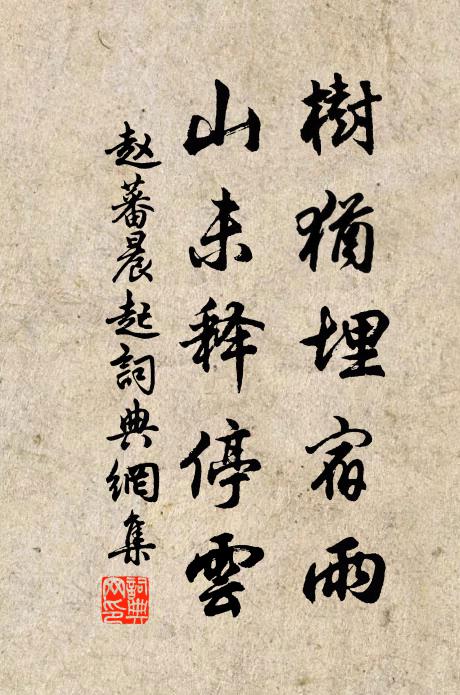 樹猶埋宿雨
山未释停雲
赵蕃晨起詞典網集
詞典網印